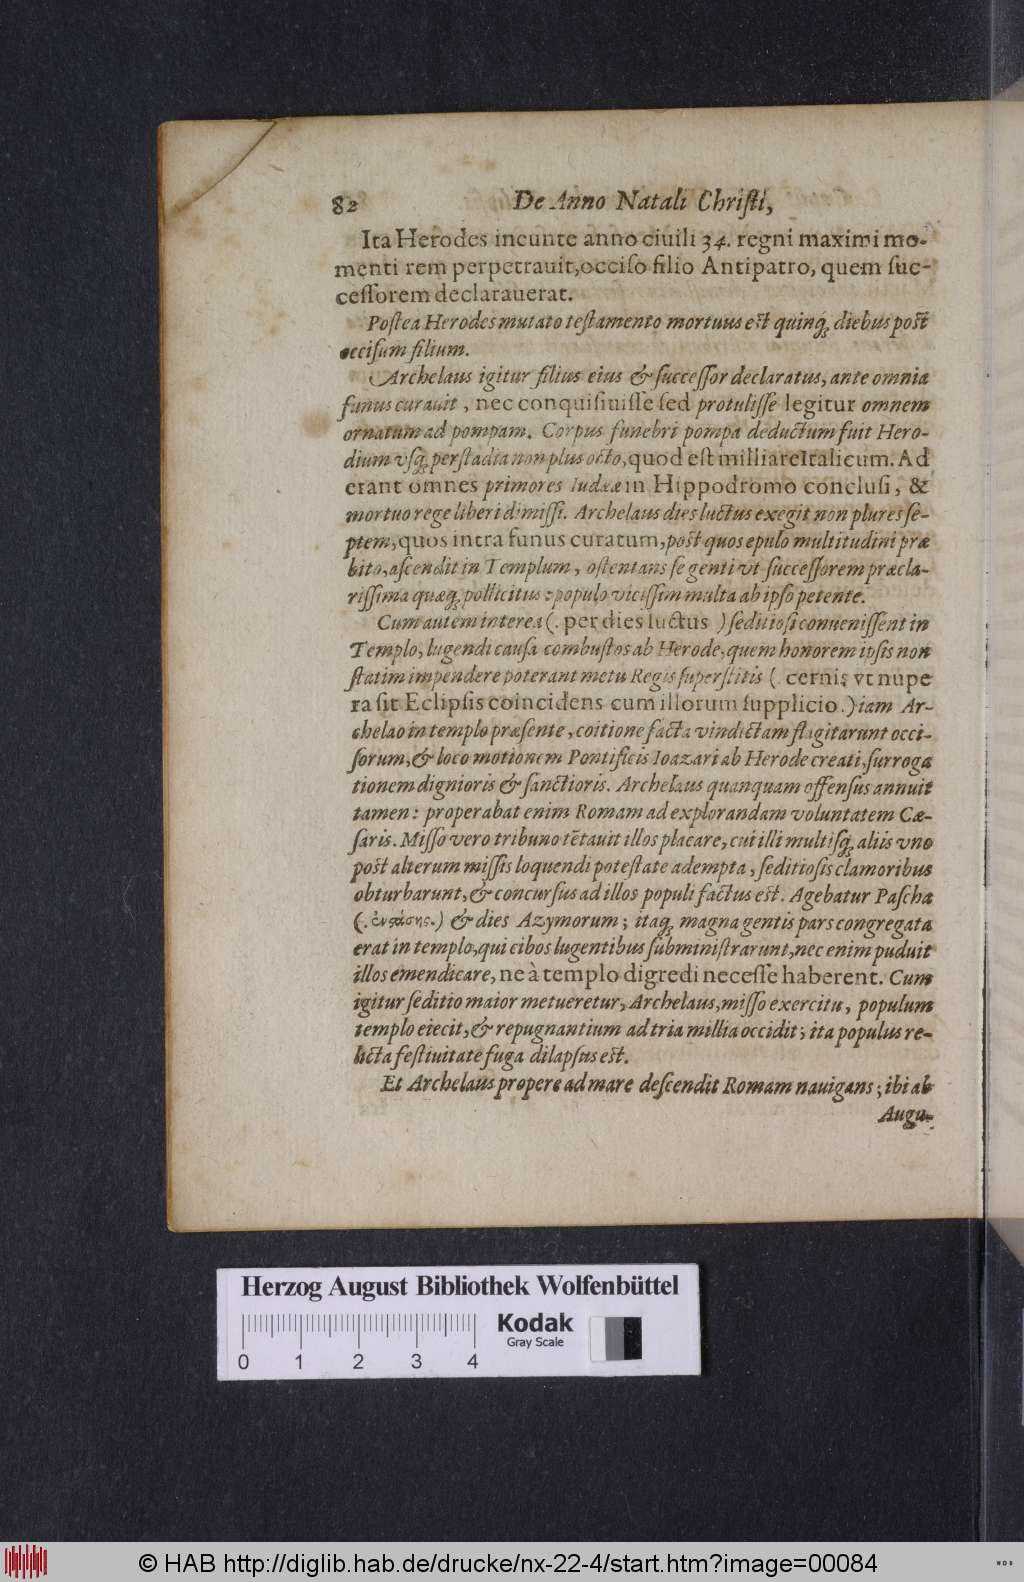 82 De Anno Natali Christi,
Ita Herodes ineunte anno ciuili 34. regni maximi mo-
menti rem perpetrauit, occiso filio Antipatro, quem suc-
cessorem declarauerat.
Postea Herodes mutato testamento mortuus est quinq; diebus post
occisum filium.
Archelaus igitur filius eius & successor declaratus, ante omnia
funus curauit, nec conquisiuisse sed protulisse legitur omnem
ornatum ad pompam. Corpus funebri pompa deductum fuit Hero-
dium vsq; per stadia non plus octo, quod est milliare Italicum. Ad
erant omnes primores Iudææ in Hippodromo conclusi, &
mortuo rege liberi dimissi. Archelaus dies luctus exegit non plures se-
ptem, quos intra funus curatum, post quos epulo multitudini præ
bito, ascendit in Templum, ostentans se genti vt successorem præcla-
rissima quæq; pollicitus: populo vicissim multa ab ipso petente.
Cum autem interea (. per dies luctus ) seditiosi conuenissent in
Templo, lugendi causa combustos ab Herode, quem honorem ipsis non
statim impendere poterant metu Regis superstitis (. cernis vt nupe
ra sit Eclipsis coincidens cum illorum supplicio.) iam Ar-
chelao in templo præsente, coitione facta vindictam flagitarunt occi-
sorum, & loco motionem Pontificis Ioazari ab Herode creati, surroga
tionem dignioris & sanctioris. Archelaus quanquam offensus annuit
tamen: properabat enim Romam ad explorandam voluntatem Cæ-
saris. Misso vero tribuno tētauit illos placare, cui illi multisq; aliis vno
post alterum missis loquendi potestate adempta, seditiosis clamoribus
obturbarunt, & concursus ad illos populi factus est. Agebatur Pascha
(. ) & dies Azymorum; itaq; magna gentis pars congregata
erat in templo, qui cibos lugentibus subministrarunt, nec enim puduit
illos emendicare, ne à templo digredi necesse haberent. Cum
igitur seditio maior metueretur, Archelaus, misso exercitu, populum
templo eiecit, & repugnantium ad tria millia occidit; ita populus re-
licta festiuitate fuga dilapsus est.
Et Archelaus propere ad mare descendit Romam nauigans; ibi ab
Augu-
Herzog August Bibliothek Wolfenbüttel
Kodak
Gray Scale
0 1 2 3 4
© HAB http://diglib.hab.de/drucke/nx-22-4/start.htm?image=00084